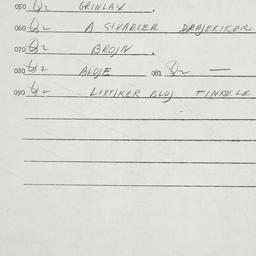 050 Q2 GRINLAX.
060 Q2 A STVABLER DRAJERIKER
070 Q2 BROJN.
080 Q2 ALOJE 081 Q2 —
090 Q2 LIVTIKER ALOJ TINKELE